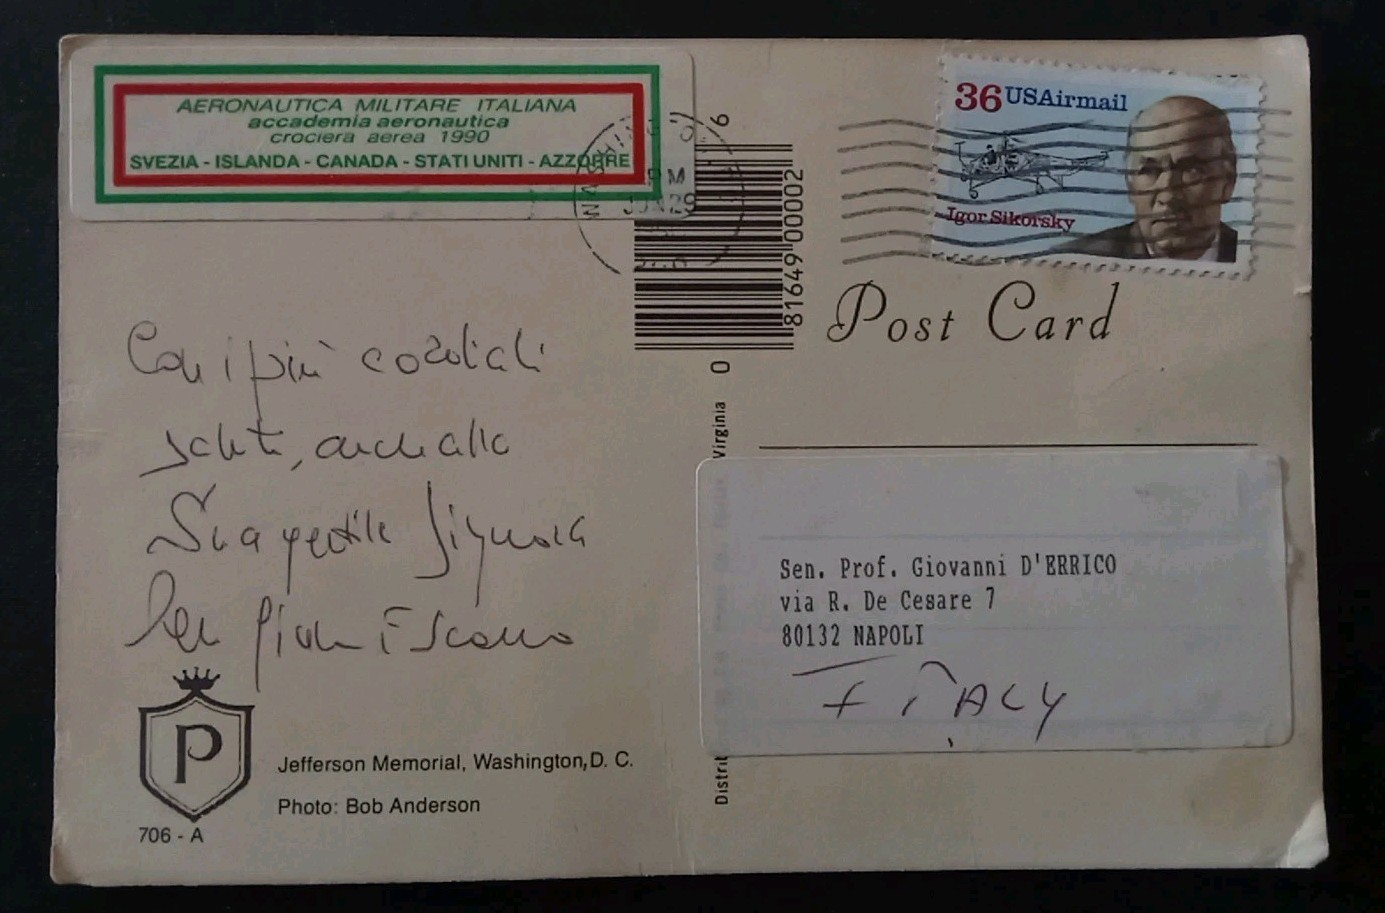 AERONAUTICA MILITARE ITALIANA
accademia aeronautica
crociera aerea 1990
SVEZIA - ISLANDA - CANADA - STATI UNITI - AZZORRE
PM
36 USAirmail
Igor Sikorsky
6
81649 00002
0
Post Card
Con i più cordiali
saluti, anche alla
Sua gentile Signora
Virginia
Distri
Sen. Prof. Giovanni D'ERRICO
via R. De Cesare 7
80132 NAPOLI
ITALY
P
Jefferson Memorial, Washington, D. C.
Photo: Bob Anderson
706 - A